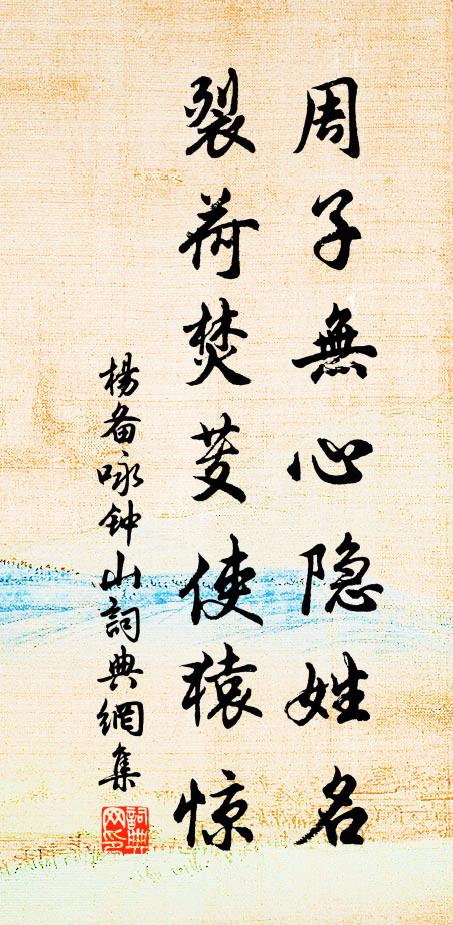 周子無心隐姓名
裂荷焚芰使猿惊
楊备咏钟山詞典網集
詞典網印